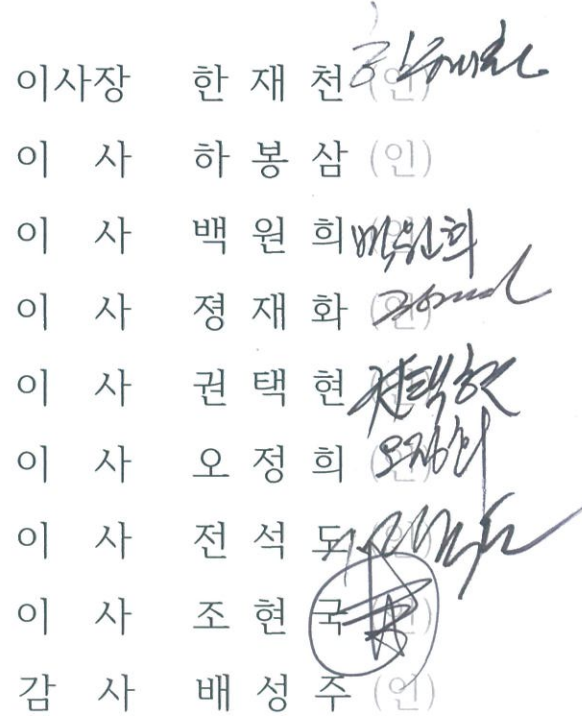 이사장 한 재 천 (인)
이 사 하 봉 삼 (인)
이 사 백 원 희 (인) 백원희
이 사 졍 재 화 (인)
이 사 권 택 현 (인) 권택현
이 사 오 정 희 (인) 오정희
이 사 전 석 도 (인)
이 사 조 현 국 (인)
감 사 배 성 주 (인)